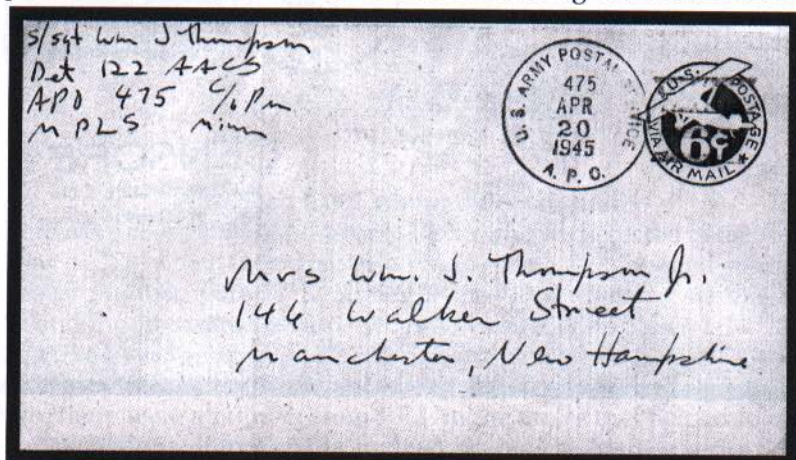 S/Sgt Wm J Thompson
Det 122 AACS
APO 475 c/o Pm
MPLS Minn
U.S. ARMY POSTAL SERVICE
475
APR
20
1945
A. P. O.
U.S. POSTAGE
6¢
VIA AIR MAIL
Mrs Wm. J. Thompson Jr.
146 Walker Street
Manchester, New Hampshire